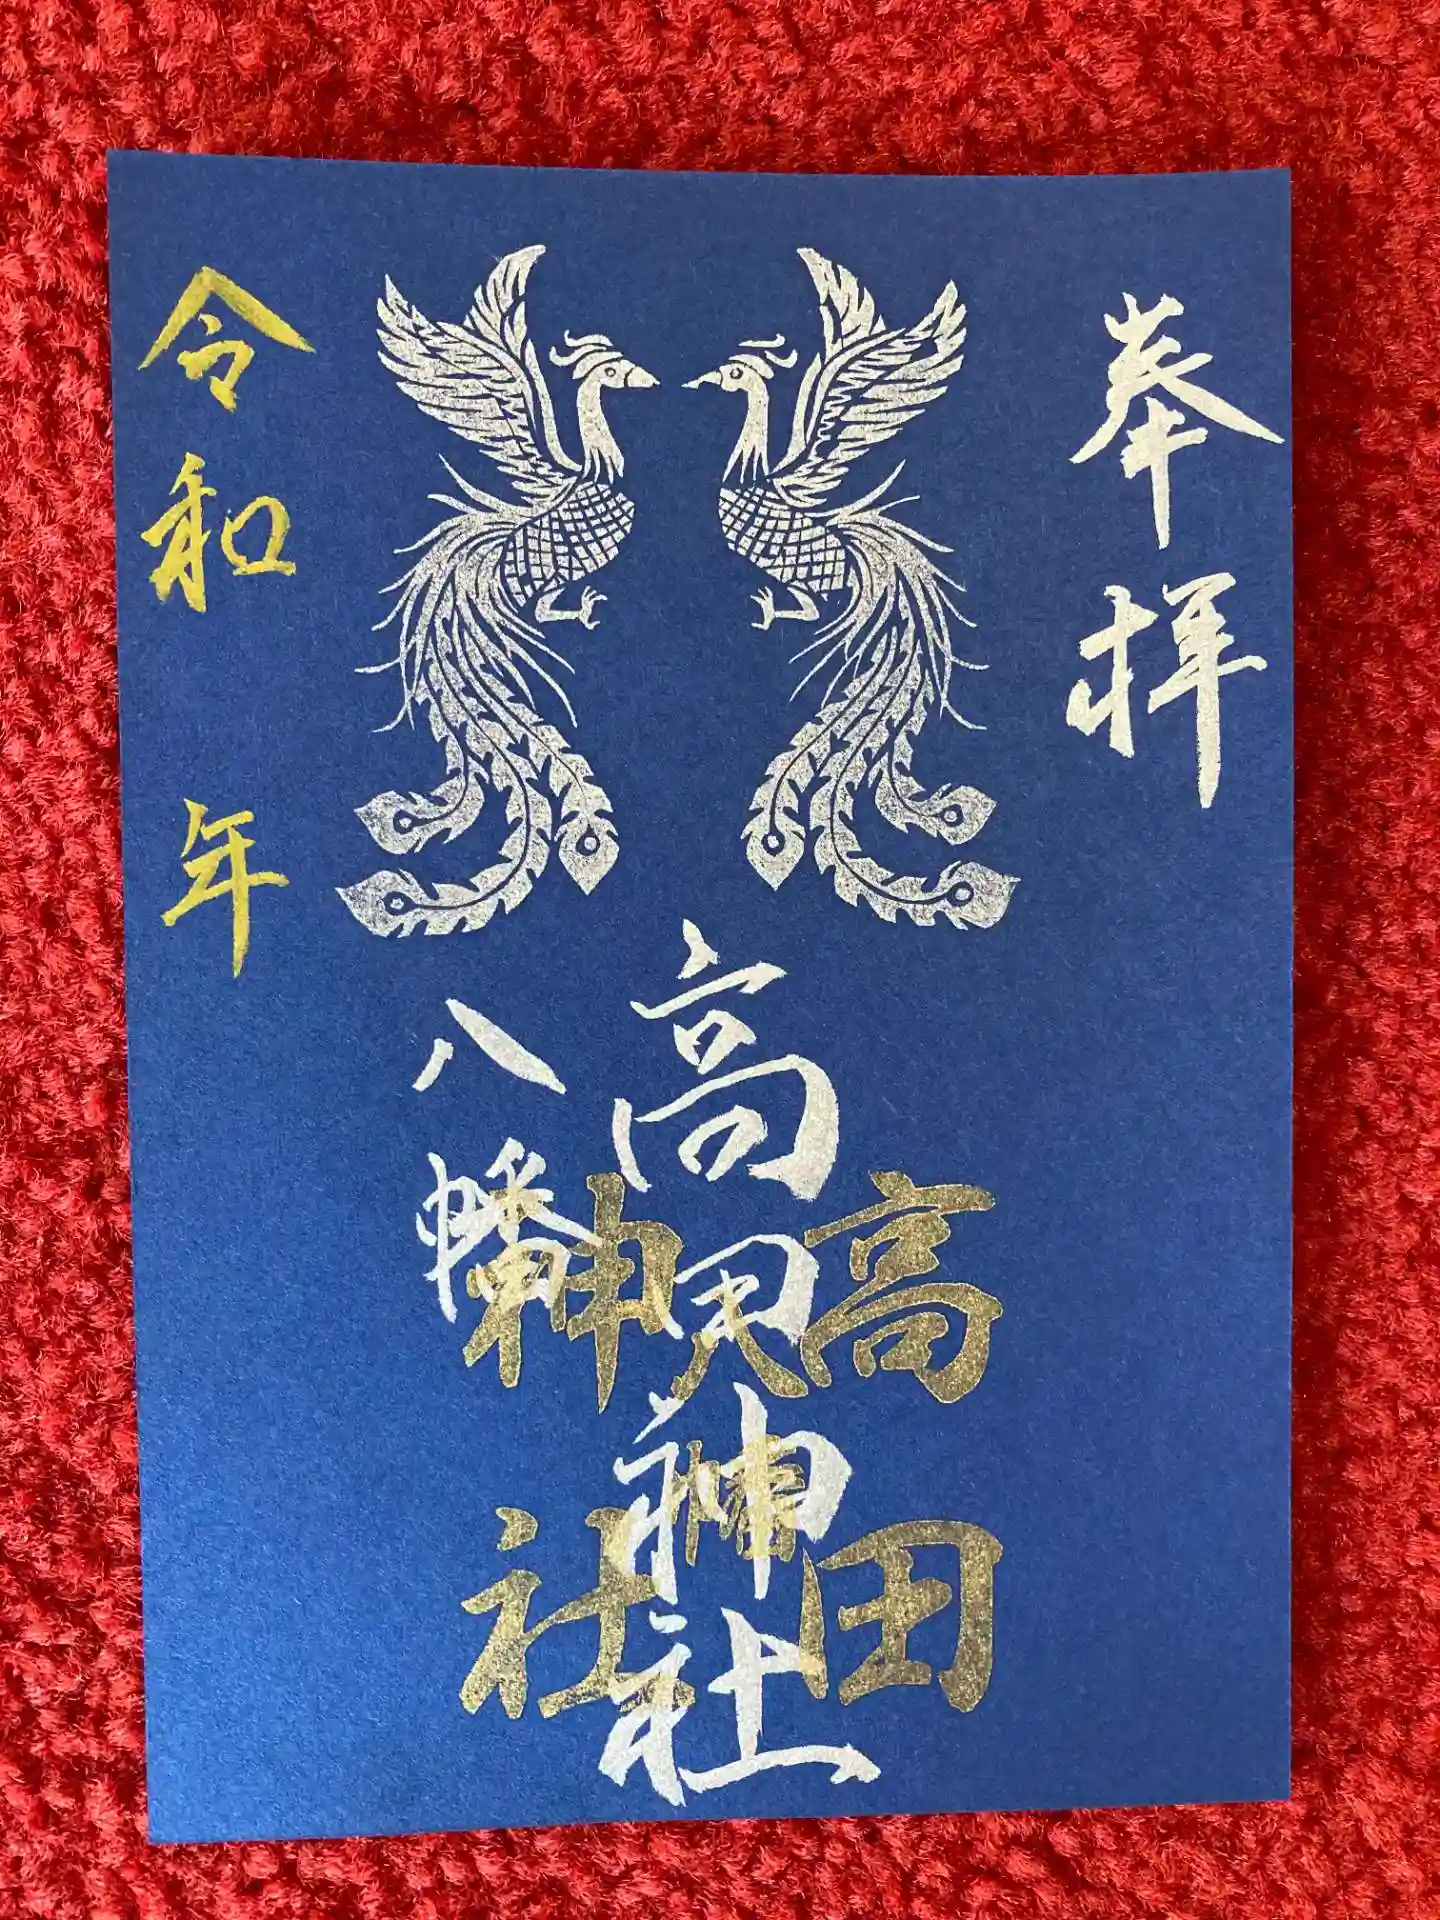 奉拝
高田神社
八幡
高田
八幡
神社
令和 年